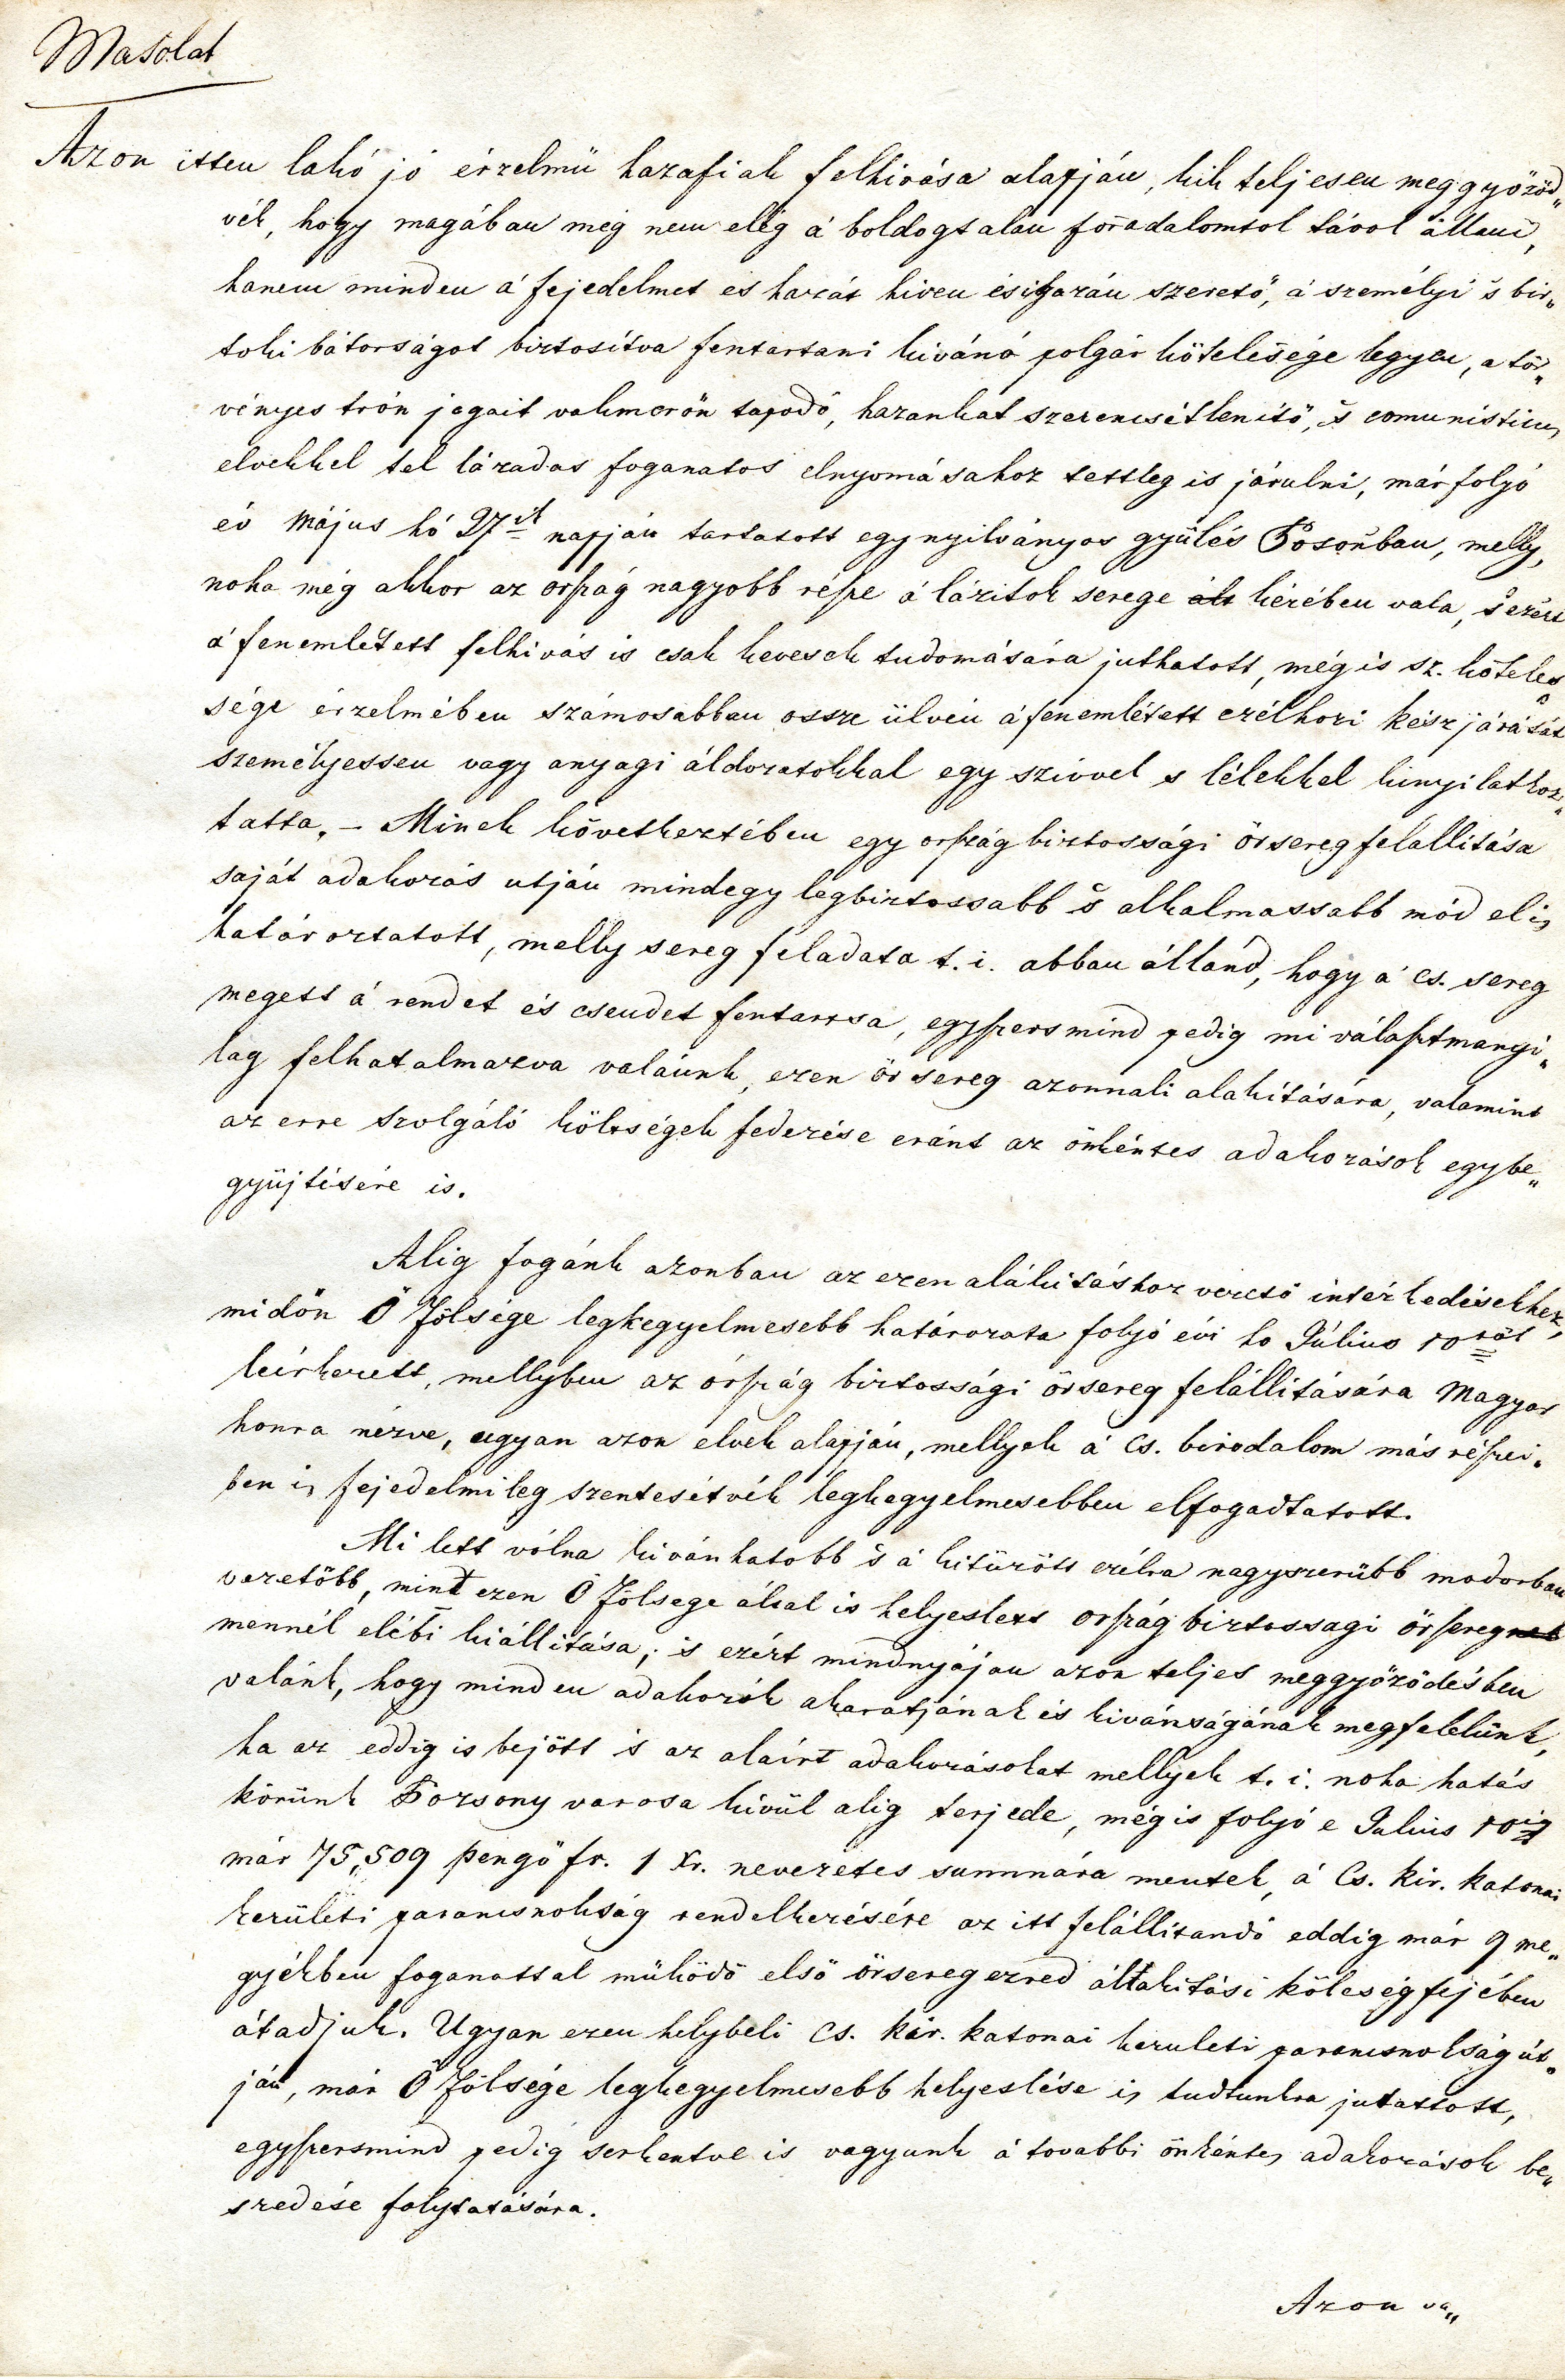 Masolat
Azon itten lakó jó érzelmü hazafiak felhivása alapján, kik teljesen meggyözöd„
vék, hogy magában még nem elég á boldogtalan forradalomtol távol állani,
hanem minden á fejedelmet es hazát hiven és igazán szeretö, á személyi š bir„
toki bátorságot biztosítva fentartani kivánó polgár kötelesége legyen, a tör„
vényes trón jogait vakmerön tapodó, hazankat szerencsétlenitö, š comunisticus
elvekkel tel lázadas foganatos elnyomásahoz tettleg is járulni, már folyó
év Május hó 27ik napján tartatott egy nyilványos gyülés Posonban, melly,
noha még akkor az ország nagyobb része á lázitok serege ált kezében vala, š ezért
á fenemlétett felhivás is csak kevesek tudomására juthatott, még is sz. köteles
sége érzelmében számosabban ossze ülvén á fenemlétett czélhozi kész járását
személyessen vagy anyagi áldozatokkal egy szivvel s lélekkel kinyilatkoz„
tatta. – Minek következtében egy ország biztossági örsereg felallitása
saját adakozás utján mindegy legbiztossabb š alkalmassabb mód el is
határoztatott, melly sereg feladata t. i. abban álland, hogy á cs. sereg
megett á rendet és csendet fentartsa, egyszersmind pedig mi választmanyi„
lag felhatalmazva valánk, ezen örsereg azonnali alakítására, valamint
az erre szolgáló költségek fedezése eránt az önkéntes adakozások egybe„
gyüjtésére is.
Alig fogánk azonban az ezen alákitáshoz vezetö intézkedésekhez,
midön Ö Fölsége legkegyelmesebb határozata folyó évi ho Július 10röl
leérkezett, mellyben az órszág biztossági örsereg felállitására Magyar
honra nézve, ugyan azon elvek alapján, mellyek á cs. birodalom más részei„
ben is fejedelmileg szentesítvék legkegyelmesebben elfogadtatott.
Mi lett vólna kivánhatobb š á kitüzött czélra nagyszerübb modorban
vezetöbb, mint ezen Ö Fölsege által is helyeslett ország biztossagi örseregnek
mennél elébi kiállitása; is ezért mindnyájan azon teljes meggyözödésben
valánk, hogy minden adakozók akaratjának és kivánságának megfelelünk,
ha az eddig is bejött is az aláirt adakozásokat mellyek t. i. noha hatás
körünk Pozsony varosa kívül alig terjede, még is folyó e Julius 10ig
már 75,509 pengö fr. 1 xr. nevezetes summára mentek, á Cs. kir. katonai
kerületi parancsnokság rendelkezésére az itt felállitandó eddig már 9 me„
gyékben foganattal müködö elsö örsereg ezred áltakitási költség fejében
átadjuk. Ugyan ezen helybeli Cs. kir. katonai kerületi parancsnokság út„
ján, már Ö Fölsége legkegyelmesebb helyeslése is tudtunkra jutattott,
egyszersmind pedig serkentve is vagyunk á tovabbi önkéntes adakozások be„
szedése folytatására.
Azon va„